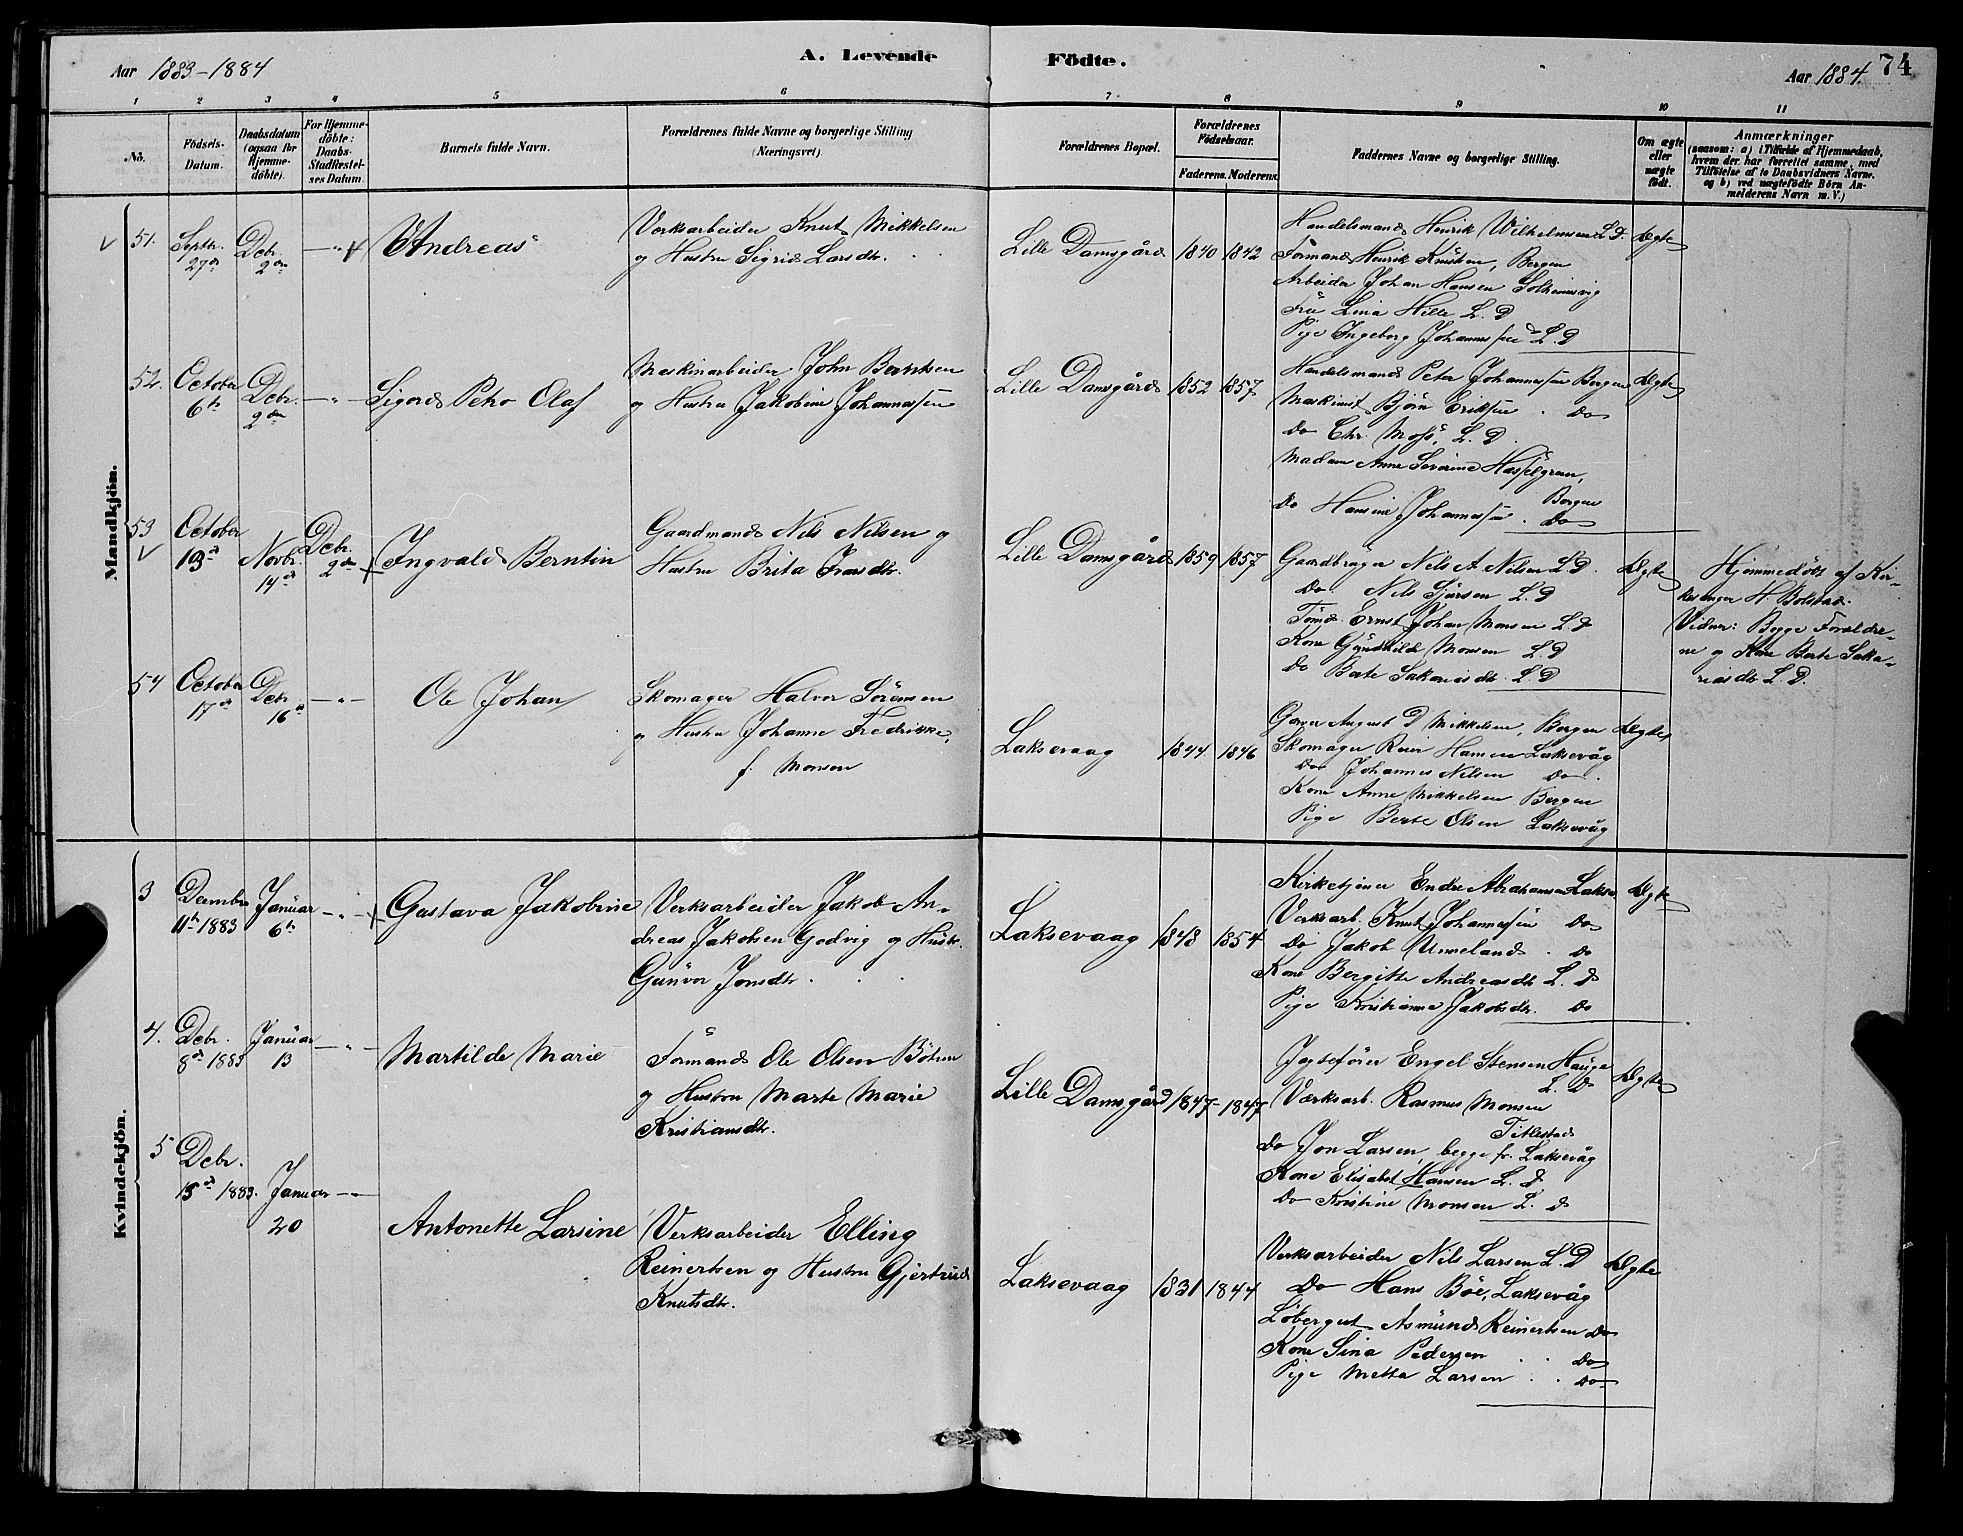 A. Levende Födte.
Aar 1883-1884
Aar 1884.
74
1 2 3 4 5 6 7 8 9 10 11
No.
Födsels-Datum.
Daabsdatum (ogsaa for Hjemme-döbte).
For Hjemme-döbte: Daabs-Stadfæstel-ses Datum.
Barnets fulde Navn.
Forældrenes fulde Navne og borgerlige Stilling (Næringsvei).
Forældrenes Bopæl.
Forældrenes Födselsaar.
Faderens. Moderens.
Faddernes Navne og borgerlige Stilling.
Om ægte eller uægte födt.
Anmærkninger
(saasom: a) i Tilfælde af Hjemmedaab, hvem der har forrettet samme, med Tilföielse af to Daabsvidners Navne, og b) ved uægtefödte Börn An-melderens Navn m. V.)
Mandkjön.
51. Septr. 27de Debr. 2den — " — Andreas
Verksarbeider Knut Mikkelsen
og Hustru Sigrid Larsdtr.
Lille Damsgård 1840 1842
Handelsmand Henrik Wilhelmsen L. D. Ægte
Formand Henrik Knutsen, Bergen
Arbeider Johan Hansen Solheimsvig
Frü Lina Hille L. D
Pige Ingeborg Johannessen L. D
52. October 6te Debr. 2den — " — Sigurd Petro Olaf
Maskinarbeider John Berntsen
og Hustru Jakobine Johannessen
Lille Damsgård 1852 1857
Handelsmand Peter Johannessen Bergen Ægte
Maskinist Björn Eriksen . Do
Do Chr. Moss, L. D.
Madam Anne Severine Hasselgreen,
Bergen
Do Hansine Johannessen . Do
53 October 13de Novbr. 14de Debr. 2den Ingvald Berntin
Gaardmand Nils Nilsen og
Hustru Brita Iversdtr.
Lille Damsgård 1859 1857
Gaardbruger Nils A. Nilsen L. D. Ægte
Do Nils Sjursen L. D
Tømd. Ernst Johan Monsen L. D
Kone Gündhilde Monsen L. D
Do Berte Sakariasdtr. L. D
Hjemmedöbt af Kir-
kesanger H. Bolstad.
Vidner: Begge Forældre-
ne og Kone Berte Saka-
riasdtr L. D.
54 October 17de Debr. 16de — " — Ole Johan
Skomager Halvor Sörensen
og Hustru Johanne Fredrikke,
f. Monsen
Laksevaag 1844 1846
Garver August D Mikkelsen, Bergen Ægte
Skomager Reier Hansen Laksevåg
Do Johannes Nilsen Do
Kone Anne Mikkelsen Bergen
Pige Berte Olsen Laksevåg
Kvindekjön.
3 December 11te 1883 Januar 6te — " — Gustava Jakobine
Verksarbeider Jakob An-
dreas Jakobsen Godvig og Hustr.
Günvor Jonsdtr.
Laksevaag 1848 1854
Kirketjener Endre Abrahamsen Lakse. Ægte
Verksarb. Knut Johannessen Do
Do Jakob Unneland . Do
Kone Bergitte Andreasdtr L. D
Pige Kristianne Jakobsdtr. Do
4. Debr. 8de 1883 Januar 13 — " — Martilde Marie
Formand Ole Olsen Böhm
og Hustru Marte Marie
Kristiansdtr.
Lille Damsgård 1847-1847
Jægtefører Engel Stensen Hauge Ægte
L. D
Værksarb. Rasmus Monsen
Titlestad
Do Jon Larsen, begge fr. Laksevåg
Kone Elisabet Hansen L. D
Do Kristine Monsen L. D
5 Debr. 15de 1883. Januar 20 — " — Antonette Larsine
Verksarbeider Elling
Reinertsen og Hustru Gjertrud
Knutsdtr.
Laksevaag 1831 1844
Verksarbeider Nils Larsen L. D Ægte
Do Hans Böe, Laksevåg
Løbergut Asmünd Reinertsen Do
Kone Sina Pedersen . . Do
Pige Metta Larsen . . Do